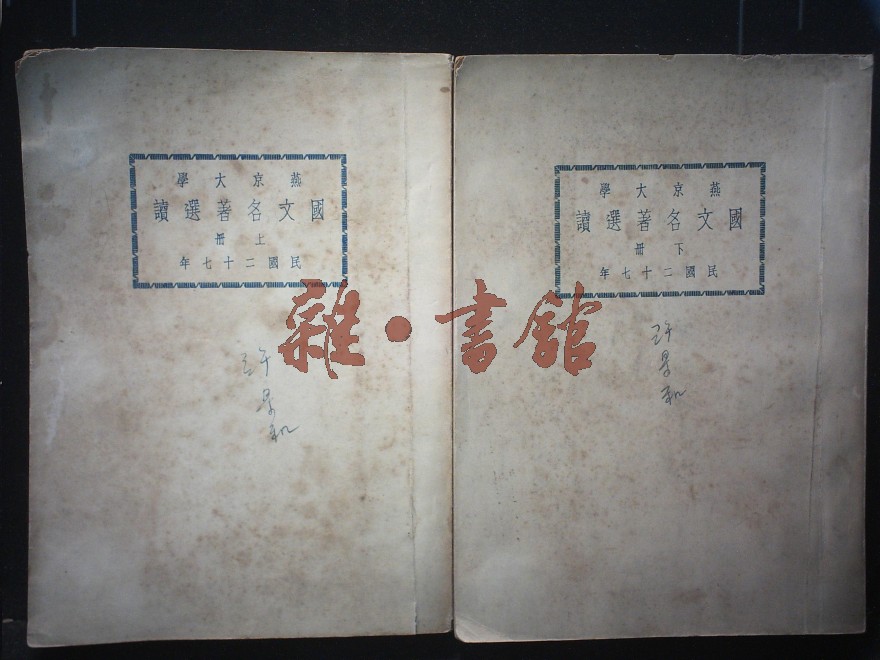 燕京大學
國文名著選讀
上冊
民國二十七年
许景和
燕京大學
國文名著選讀
下冊
民國二十七年
许景和
雜·書館